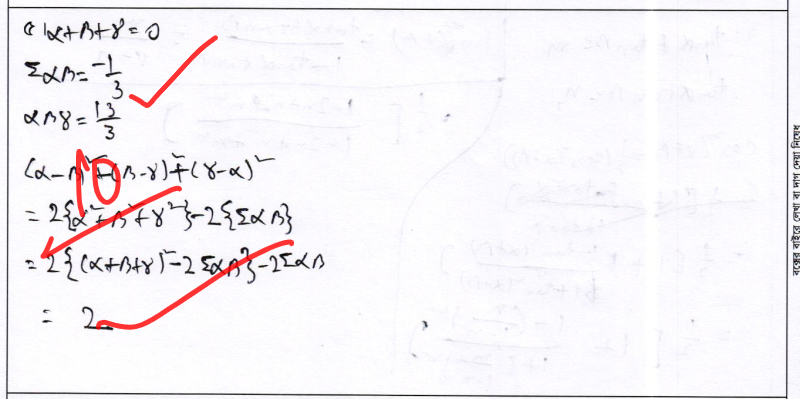 α+β+γ=0
Σαβ=-1/3
αβγ=13/3
(α-β)²+(β-γ)²+(γ-α)²
10
=2{α²+β²+γ²}-2{Σαβ}
=2{(α+β+γ)²-2Σαβ}-2Σαβ
= 2
বক্সের বাইরে লেখা বা দাগ দেয়া নিষেধ